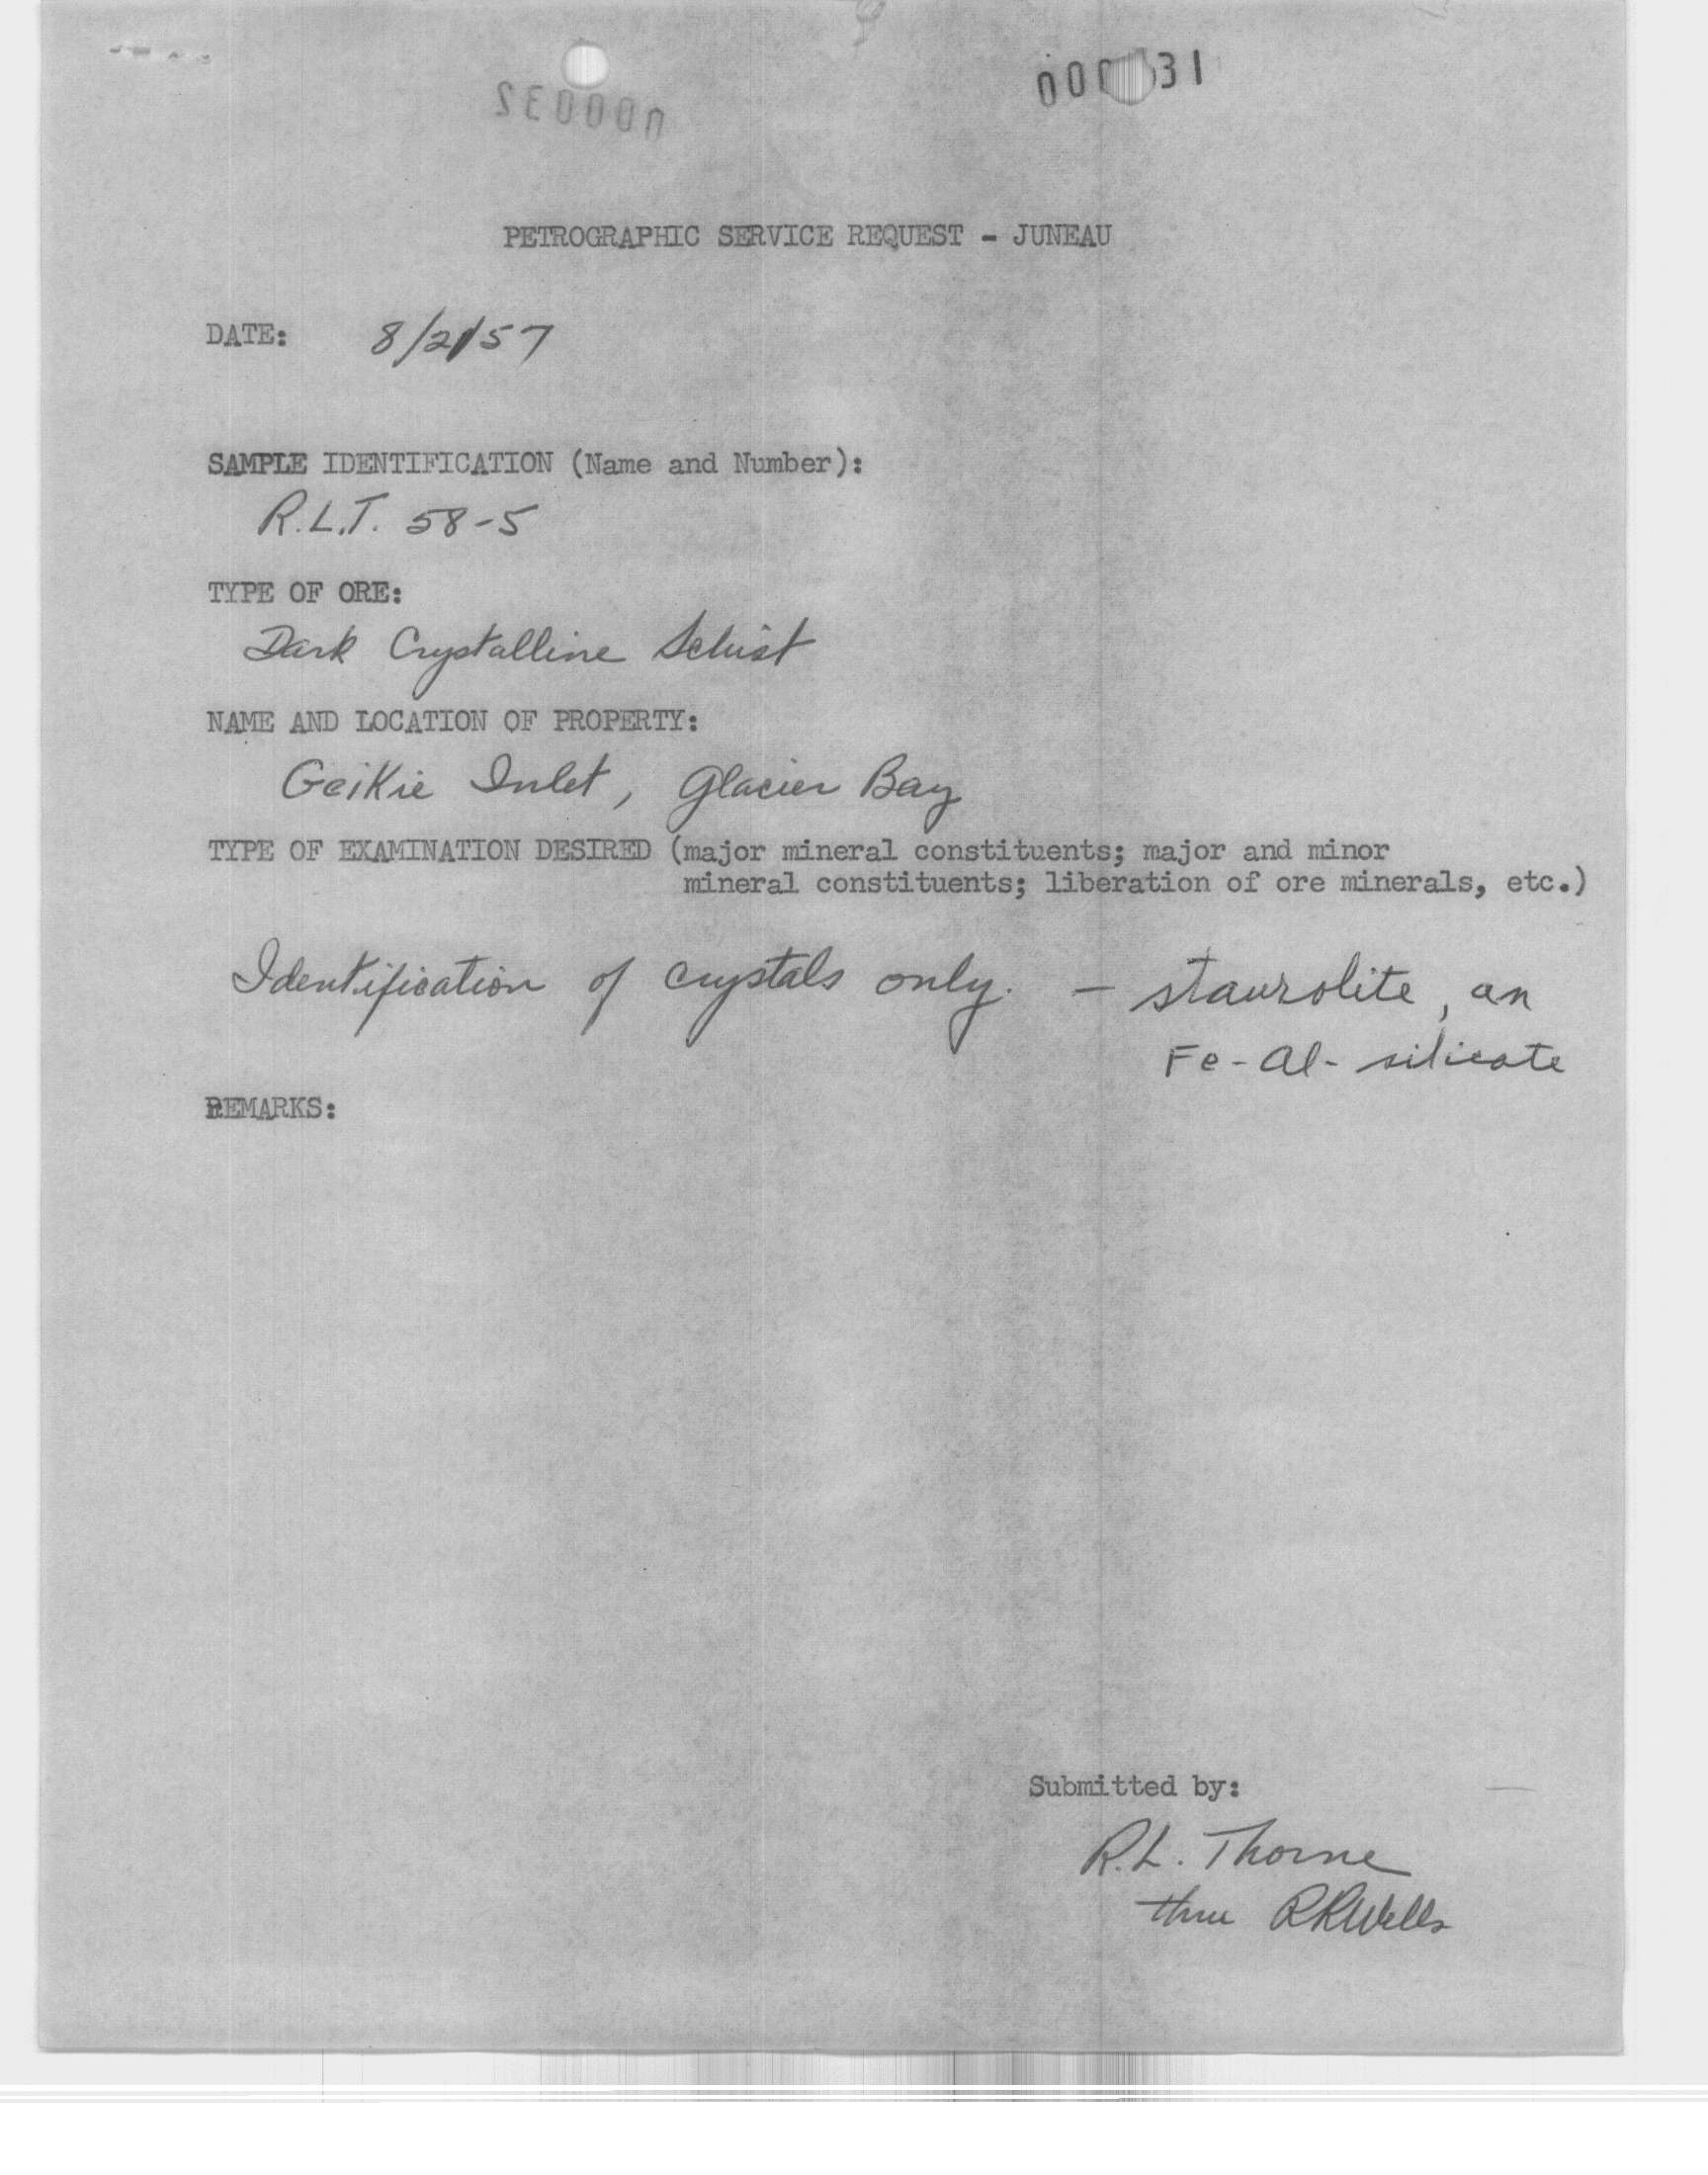 000031
000032
PETROGRAPHIC SERVICE REQUEST - JUNEAU
DATE: 8/2/57
SAMPLE IDENTIFICATION (Name and Number):
R.L.T. 58-5
TYPE OF ORE:
Dark Crystalline Schist
NAME AND LOCATION OF PROPERTY:
Geikie Inlet, Glacier Bay
TYPE OF EXAMINATION DESIRED (major mineral constituents; major and minor
mineral constituents; liberation of ore minerals, etc.)
Identification of crystals only. - staurolite, an
Fe-Al-silicate
REMARKS:
Submitted by:
R.L. Thorne
thru RRWells